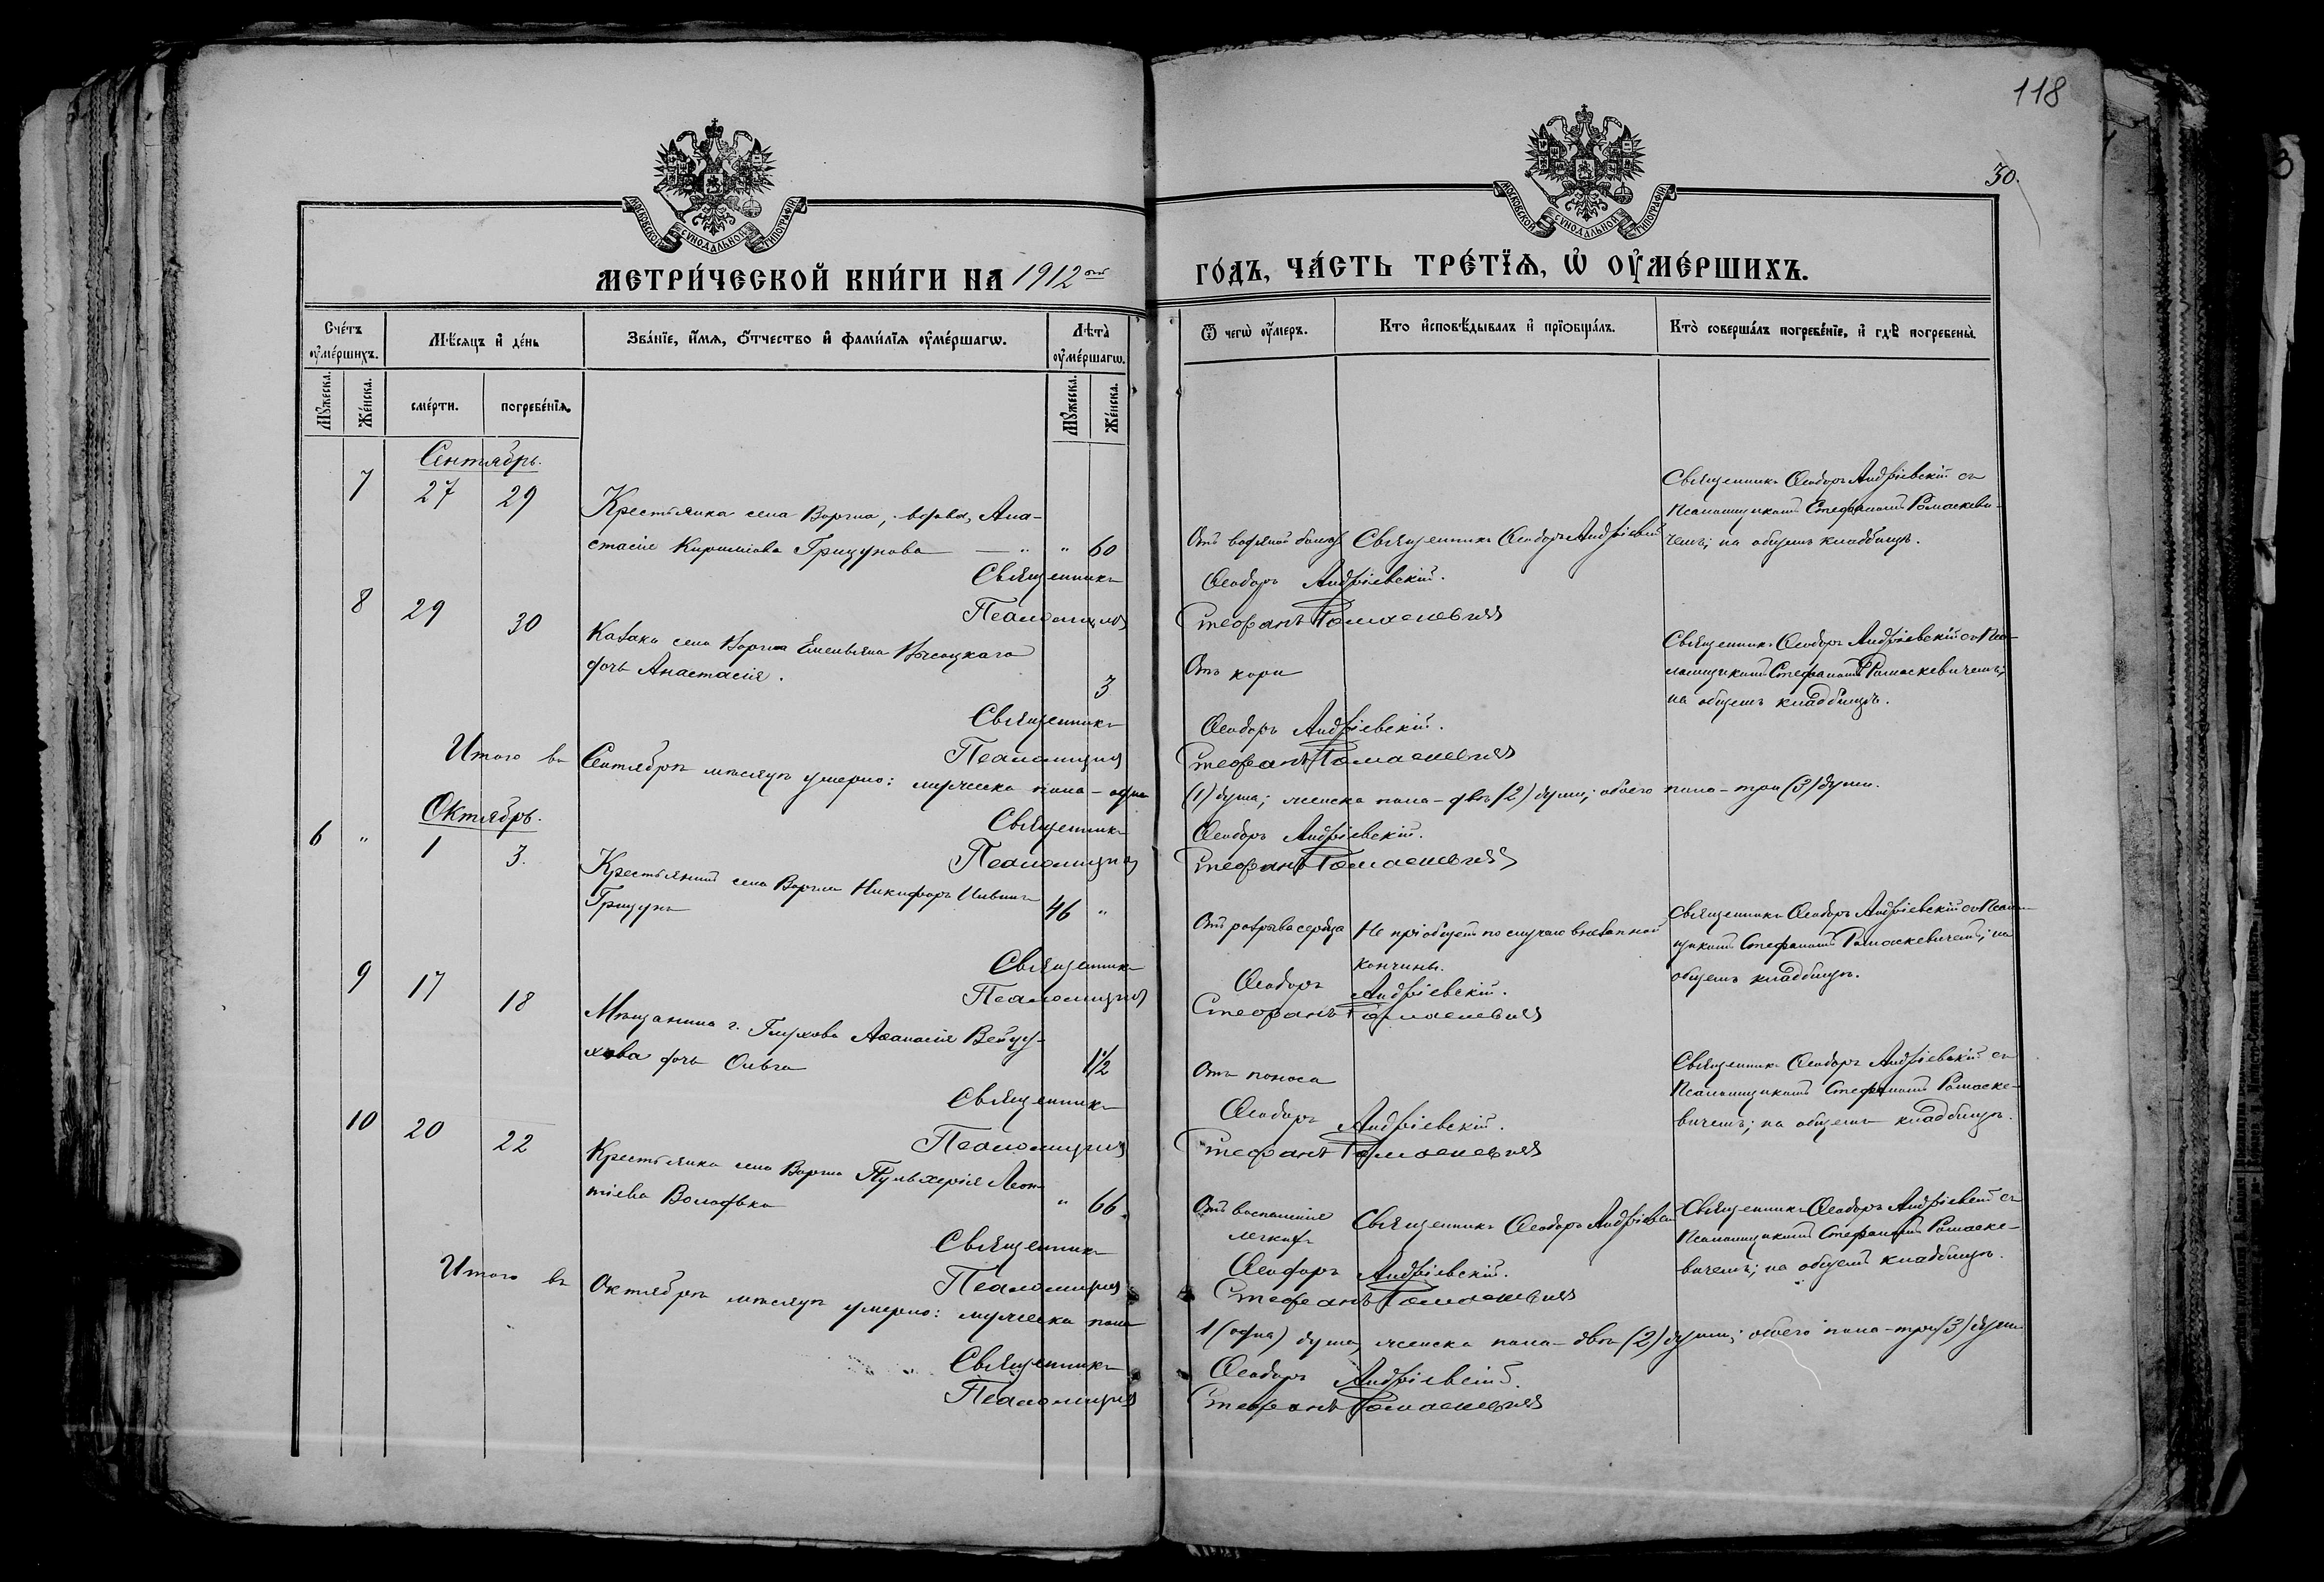 118
30.
МОСКОВСКОЙ СѴНОДАЛЬНОЙ ТИПОГРАФІИ
МОСКОВСКОЙ СѴНОДАЛЬНОЙ ТИПОГРАФІИ
МЕТРИ́ЧЕСКОЙ КНИ́ГИ НА 1912 ый
ГО́ДЪ, ЧА́СТЬ ТРЕ́ТІѦ, Ѡ ОУ҆МЕ́РШИХЪ.
Сче́тъ оу҆ме́ршихъ.
Мѣ́сяцъ и҆ де́нь
Зва́ніе, и҆́мѧ, ѻ҆́тчество и҆ фами́лїѧ оу҆ме́ршагѡ.
Лѣта̀ оу҆ме́ршагѡ.
Ѿ чегѡ̀ оу҆́меръ.
Кто̀ и҆сповѣ́дывалъ и҆ прїѡбща́лъ.
Кто̀ соверша́лъ погребе́нїе, и҆ гдѣ̀ погребены̀.
Мꙋ́жеска. Же́нска.
сме́рти.
погребе́нїѧ.
Мꙋ́жеска. Же́нска.
Сентябрь.
7 27 29
Крестьянка села Воргла, вдова, Ана-
стасія Кириллова Грицунова — " " 60
Отъ водяной болѣз. Священникъ Ѳеодоръ Андріевскій
Священникъ Ѳеодоръ Андріевскій съ
Псаломщикомъ Стефаномъ Ромаскеви-
чемъ; на общемъ кладбищѣ.
Священникъ Ѳеодоръ Андріевскій.
Псаломщикъ Стефанъ Ромаскевичъ
8 29 30
Казака села Воргла Емельяна Высоцкаго
дочь Анастасія. 3
Отъ кори
Священникъ Ѳеодоръ Андріевскій съ Пса-
ломщикомъ Стефаномъ Ромаскевичемъ;
на общемъ кладбищѣ.
Священникъ Ѳеодоръ Андріевскій.
Псаломщикъ Стефанъ Ромаскевичъ
Итого въ Сентябрѣ мѣсяцѣ умерло: мужеска пола – одна
(1) душа; женска пола – двѣ (2) души; обоего пола – три (3) души.
Октябрь.
Священникъ Ѳеодоръ Андріевскій.
Псаломщикъ Стефанъ Ромаскевичъ
6 " 1 3.
Крестьянинъ села Воргла Никифоръ
Грицунъ 46 "
Отъ разрыва сердца Не пріобщенъ по случаю внезапной
кончины.
Священникъ Ѳеодоръ Андріевскій съ Псалом-
щикомъ Стефаномъ Ромаскевичемъ; на
общемъ кладбищѣ.
Священникъ Ѳеодоръ Андріевскій.
Псаломщикъ Стефанъ Ромаскевичъ
9 17 18
Мѣщанина г. Глухова Аѳанасія
дочь Ольга 1½
Отъ поноса
Священникъ Ѳеодоръ Андріевскій съ
Псаломщикомъ Стефаномъ Ромаске-
вичемъ; на общемъ кладбищѣ.
Священникъ Ѳеодоръ Андріевскій.
Псаломщикъ Стефанъ Ромаскевичъ
10 20 22
Крестьянка села Воргла Пульхерія Леон-
тіева Волофька " 66.
Отъ воспаленія
легкихъ
Священникъ Ѳеодоръ Андріевскій
Священникъ Ѳеодоръ Андріевскій съ
Псаломщикомъ Стефаномъ Ромаске-
вичемъ; на общемъ кладбищѣ.
Священникъ Ѳеодоръ Андріевскій.
Псаломщикъ Стефанъ Ромаскевичъ
Итого въ Октябрѣ мѣсяцѣ умерло: мужеска пола
1 (одна) душа, женска пола – двѣ (2) души; обоего пола – три (3) души
Священникъ Ѳеодоръ Андріевскій.
Псаломщикъ Стефанъ Ромаскевичъ